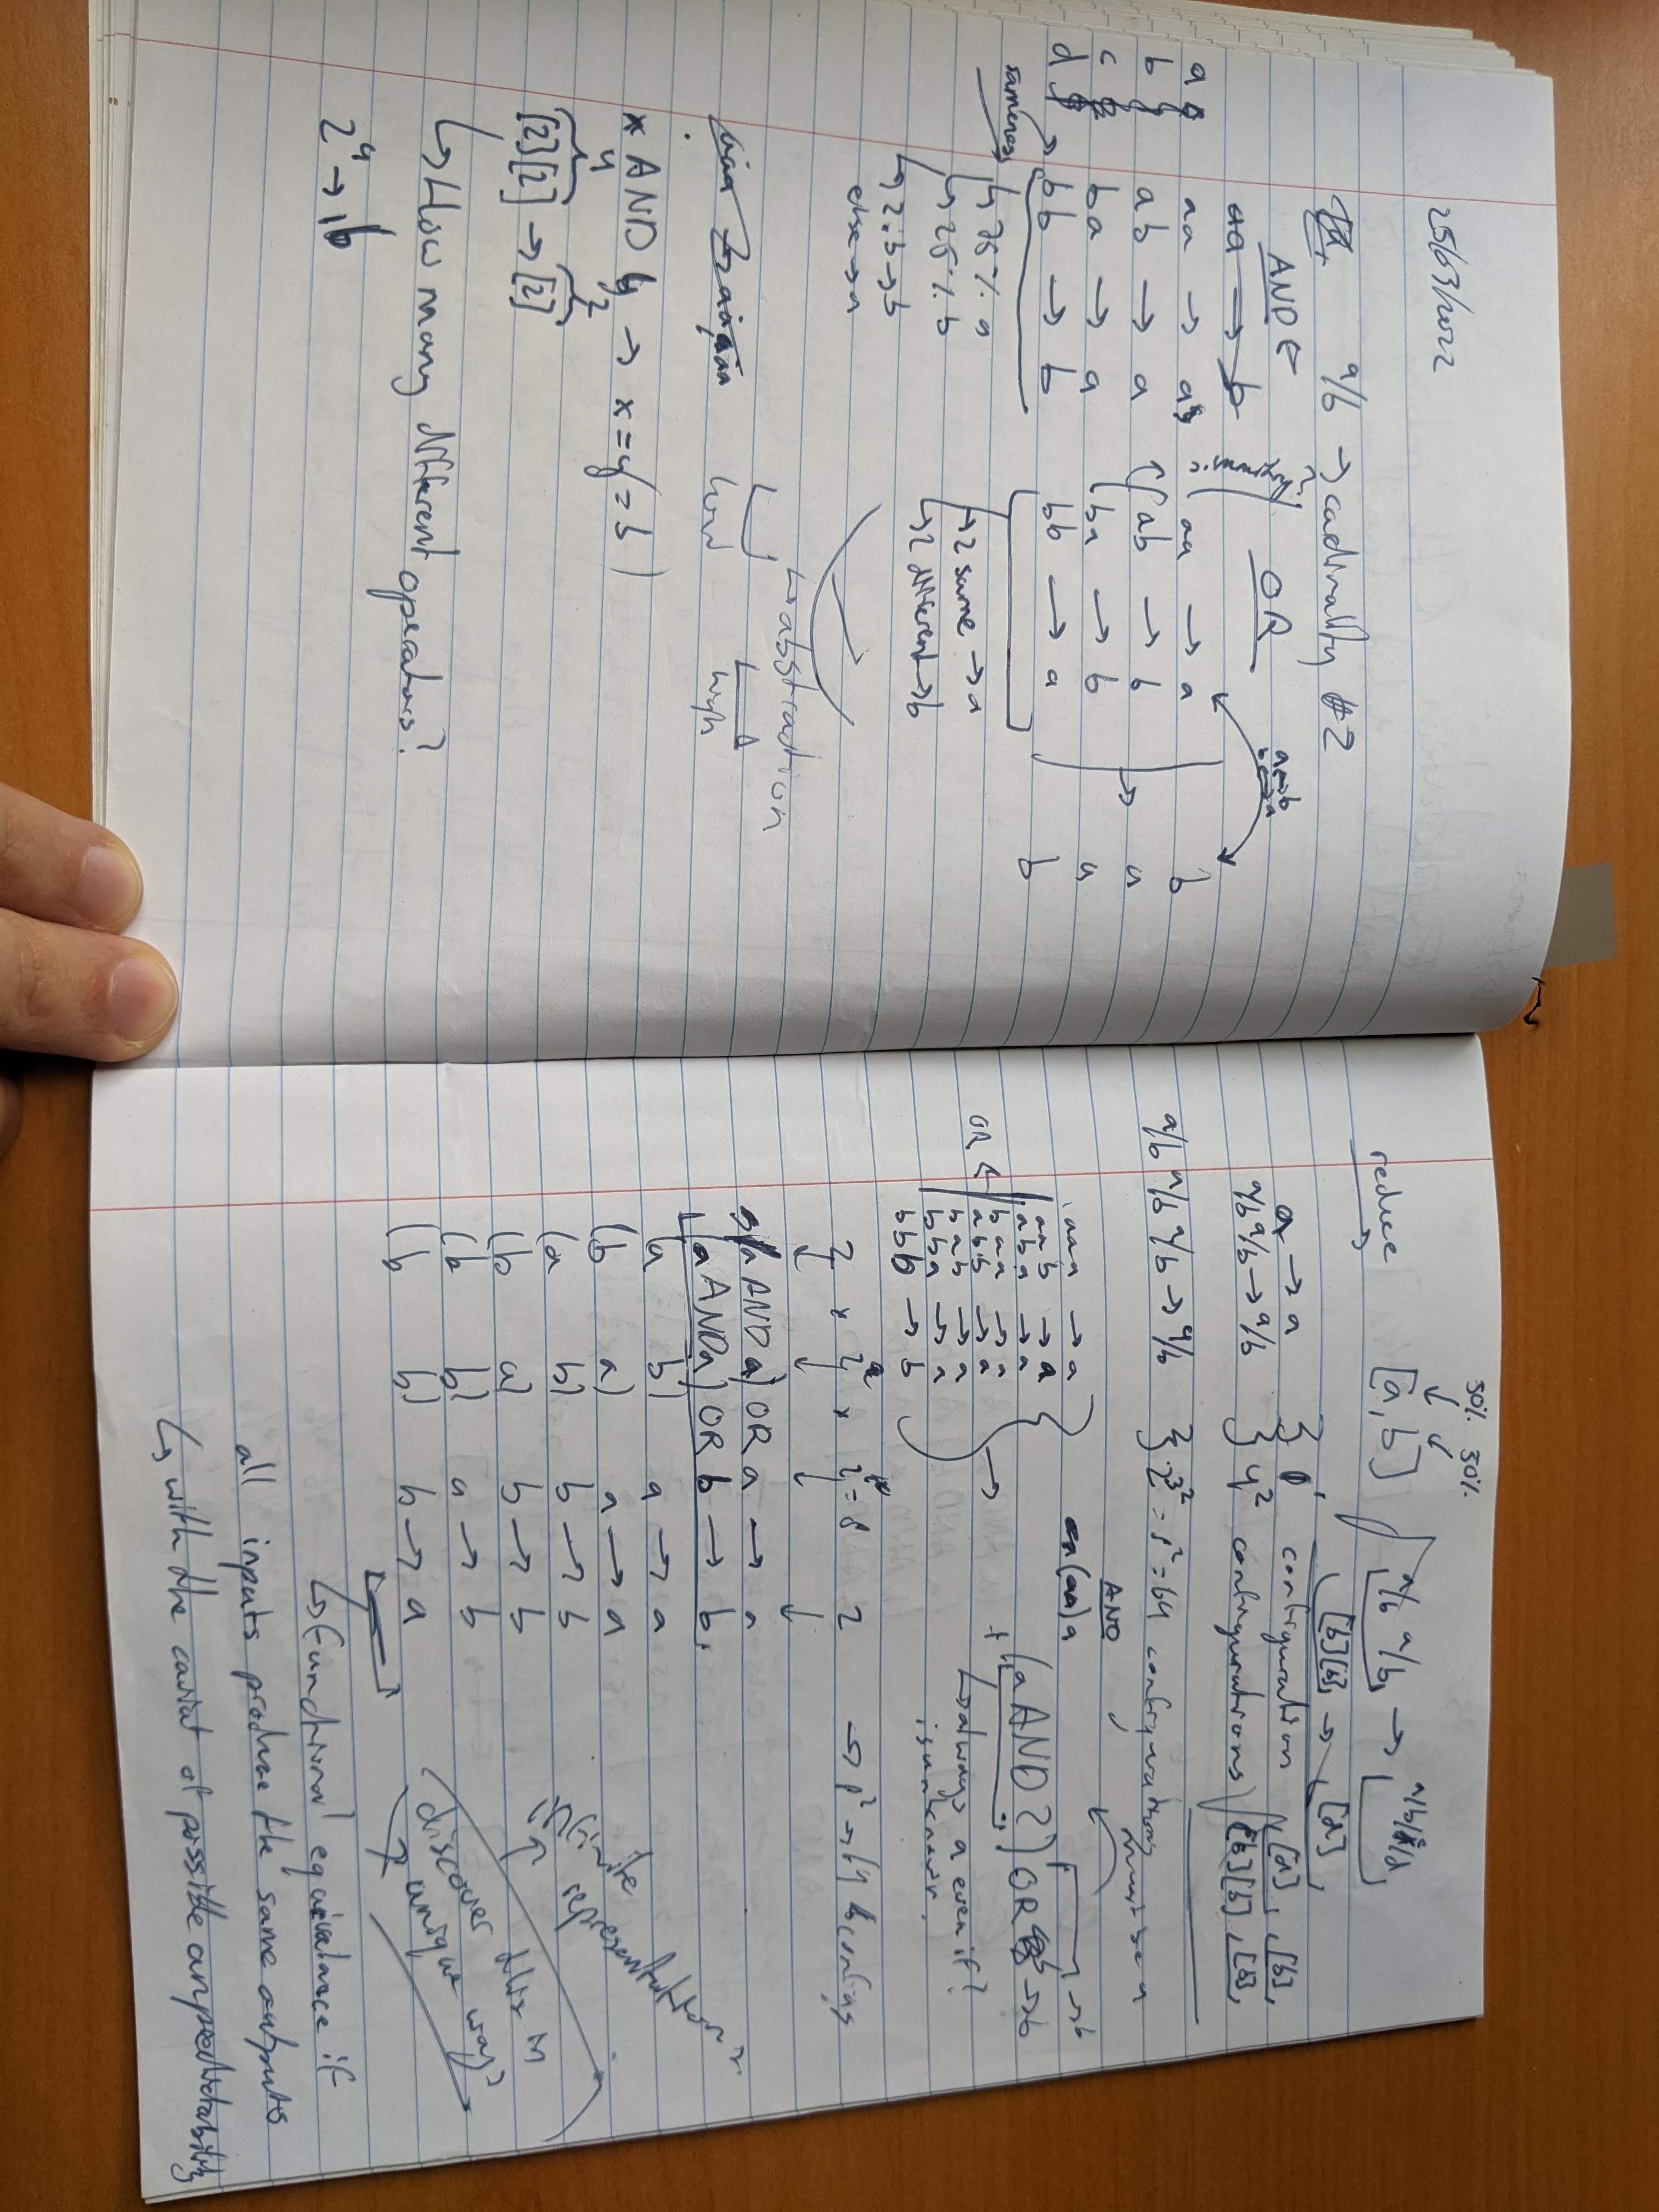 25/03/2022
a/b → cadinality 2
AND
OR
aa → b
a
b
c
d
aa → a
ab → a
ba → a
bb → b
sameness
↳ 75% a
↳ 25% b
↳ 2: b → b
else → a
aa → a
ab → b
ba → b
bb → a
↳ 2 same → a
↳ 2 different → b
a → b
b → a
b
a
a
b
↳ abstraction
low
high
x AND y → x = y = b
4
2
[2][2] → [2]
↳ How many different operators?
2⁴ → 16
reduce
50% 50%
[a, b]
a/b a/b →
a/b/c/d
[b][b] → [a]
a → a } 1 configuration
[a], [b],
a/b a/b → a/b } 4² configurations
[b][b], [b],
a/b a/b a/b → a/b } 2³² = 8² = 64 configurations
must be a
AND
aaa → a
aab → a
aba → a
baa → a
abb → a
bab → a
bba → a
bbb → b
OR
(aa) a
→ b
+ (a AND ?) OR b → b
↳ always a even if ?
is unknown.
2 x 2 x 2 = 8 2 → 8² → 64 configs
(a AND a) OR a → a
(a AND a) OR b → b
(a b) a → a
(b a) a → a
(a b) b → b
(b a) b → b
(b b) a → b
(b b) b → a
infinite representation in
discover this in
unique way?
↳ Functional equivalance if
all inputs produce the same outputs
↳ with the caviat of possible unpredictability